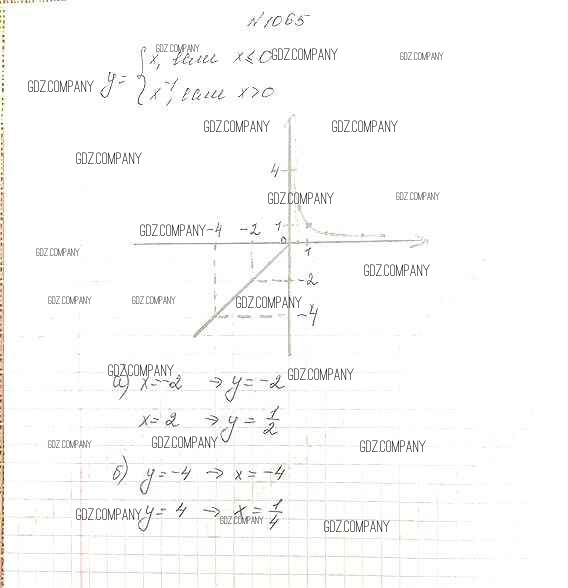 N 1065
GDZ.COMPANY
y = { x, если x ≤ 0 GDZ.COMPANY GDZ.COMPANY
GDZ.COMPANY
x⁻¹, если x > 0
GDZ.COMPANY GDZ.COMPANY
GDZ.COMPANY
4
GDZ.COMPANY GDZ.COMPANY
GDZ.COMPANY -4 -2 1
0 1
GDZ.COMPANY
GDZ.COMPANY
-2
GDZ.COMPANY GDZ.COMPANY GDZ.COMPANY
-4
GDZ.COMPANY GDZ.COMPANY
а) x = -2 → y = -2
x = 2 → y = 1/2
GDZ.COMPANY GDZ.COMPANY GDZ.COMPANY
б) y = -4 → x = -4
GDZ.COMPANY y = 4 → x = 1/4
GDZ.COMPANY GDZ.COMPANY